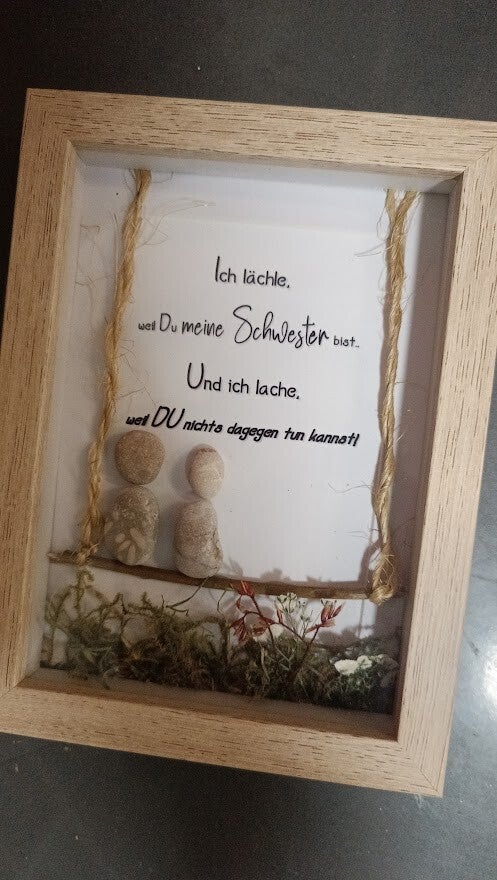 Ich lächle,
weil Du meine Schwester bist..
Und ich lache,
weil DU nichts dagegen tun kannst!